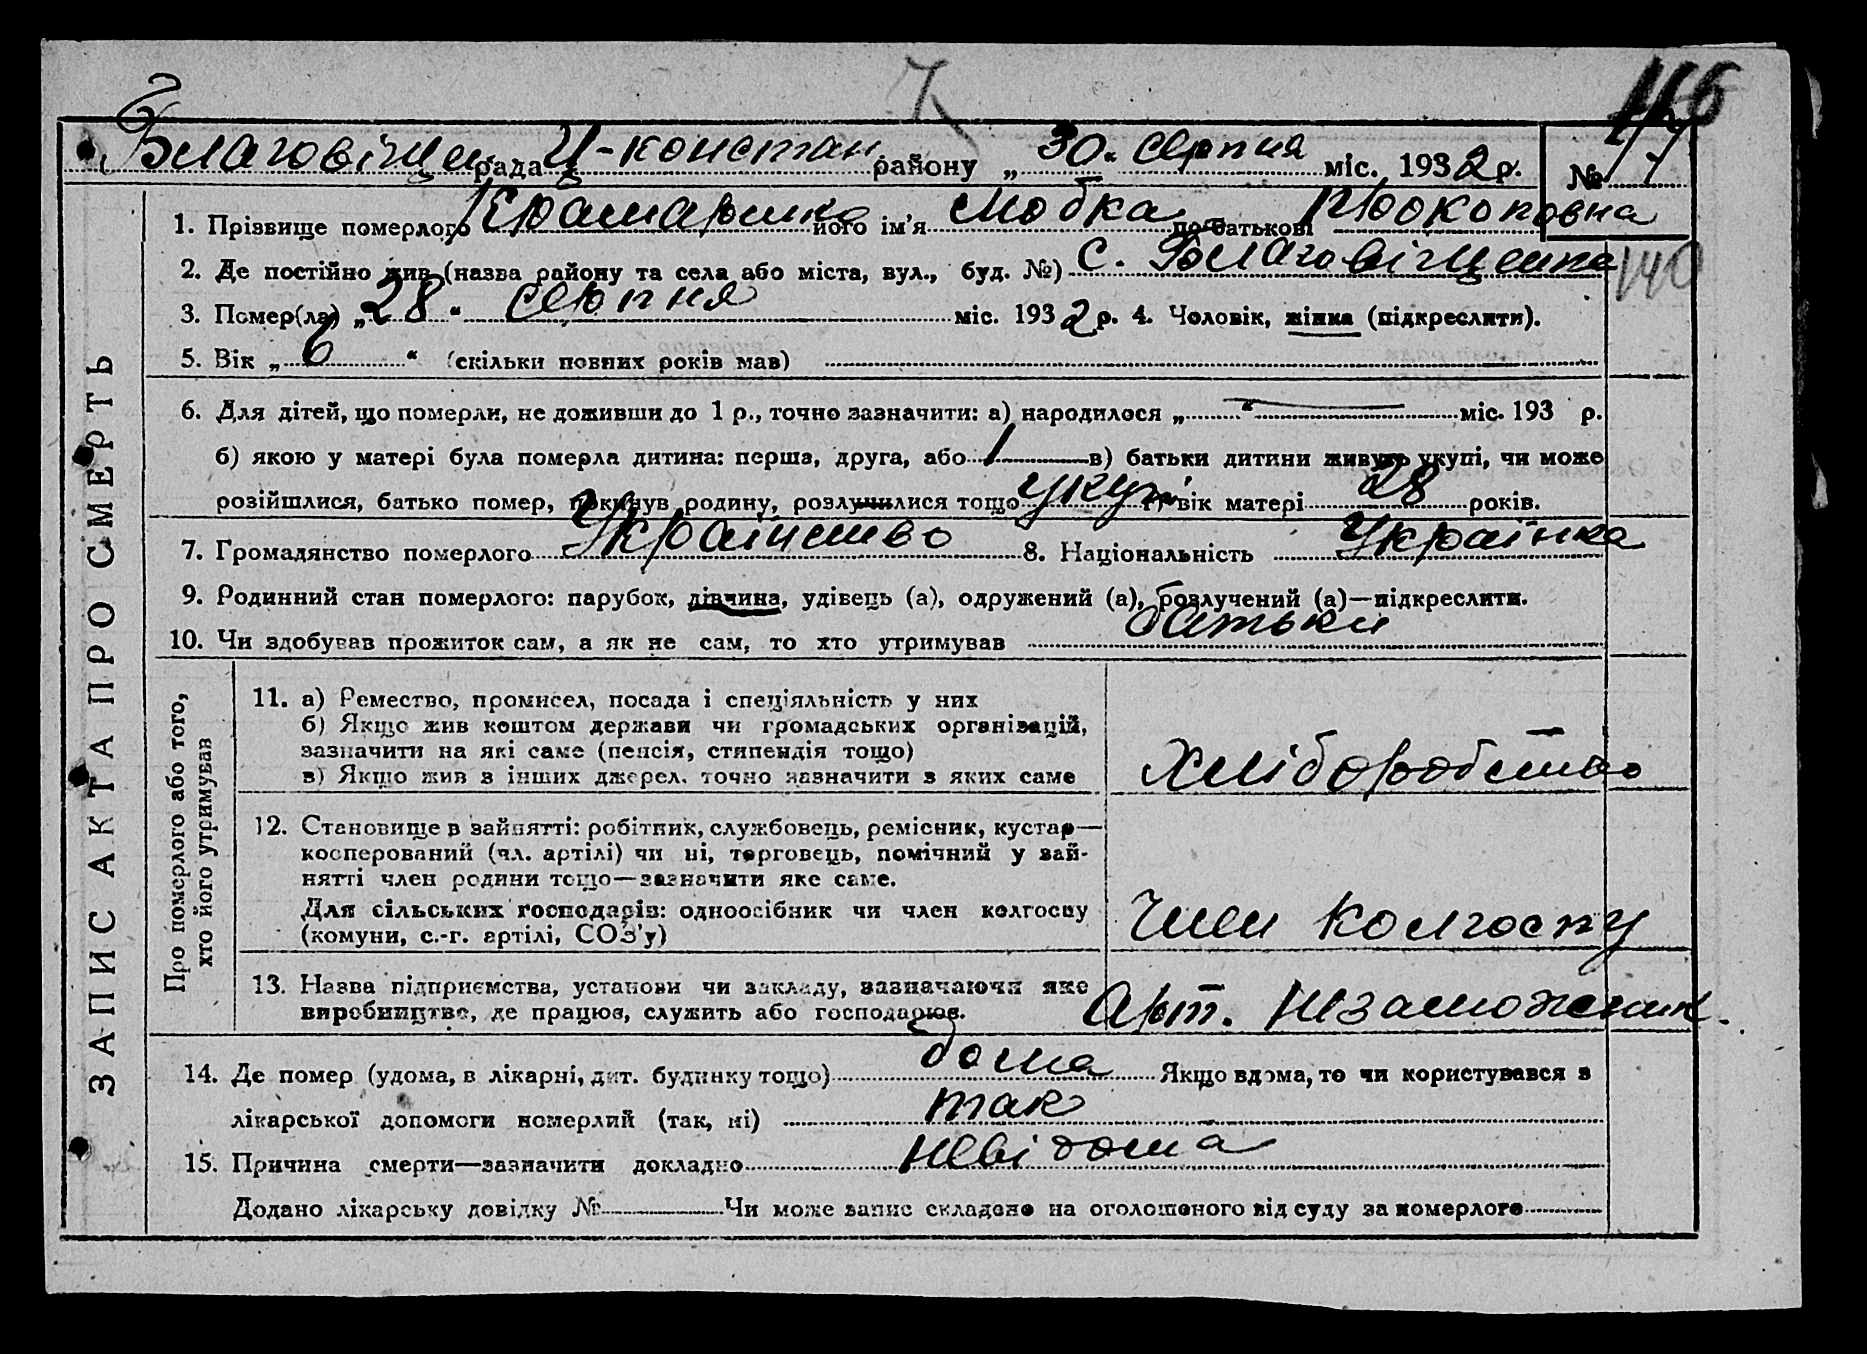 7
116
Благовіщен рада Ц-констан району „30“ серпня міс. 1932 р. №
ЗАПИС АКТА ПРО СМЕРТЬ
1. Прізвище померлого його ім'я по батькові Прокоповна
2. Де постійно жив (назва району та села або міста, вул., буд. №) С. Благовіщенка
140
3. Помер(ла) „28“ серпня міс. 1932 р. 4. Чоловік, жінка (підкреслити).
5. Вік „6“ (скільки повних років мав)
6. Для дітей, що померли, не доживши до 1 р., точно зазначити: а) народилося „ “ міс. 193 р.
б) якою у матері була померла дитина: перша, друга, або 1 в) батьки дитини живуть укупі, чи може
розійшлися, батько помер, покинув родину, розлучилися тощо укупі г) вік матері 28 років.
7. Громадянство померлого Українство 8. Національність Українка
9. Родинний стан померлого: парубок, дівчина, удівець (а), одружений (а), розлучений (а)—підкреслити.
10. Чи здобував прожиток сам, а як не сам, то хто утримував батьки
Про померлого або того,
хто його утримував
11. а) Ремество, промисел, посада і спеціяльність у них
б) Якщо жив коштом держави чи громадських організацій,
зазначити на які саме (пенсія, стипендія тощо)
в) Якщо жив з інших джерел, точно зазначити з яких саме
Хліборобство
12. Становище в зайнятті: робітник, службовець, ремісник, кустар—
косперований (чл. артілі) чи ні, торговець, помічний у зай-
нятті член родини тощо—зазначити яке саме.
Для сільських господарів: одноосібник чи член колгоспу
(комуни, с.-г. артілі, СОЗ'у)
Член колгоспу
13. Назва підприємства, установи чи закладу, зазначаючи яке
виробництво, де працює, служить або господарює.
Арт. Незаможник.
14. Де помер (удома, в лікарні, дит. будинку тощо) дома Якщо вдома, то чи користувався з
лікарської допомоги померлий (так, ні) так
15. Причина смерти—зазначити докладно невідома
Додано лікарську довідку № Чи може запис складено на оголошеного від суду за померлого